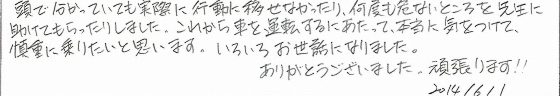 頭で分かっていても実際に行動に移せなかったり、何度も危ないところを先生に
助けてもらったりしました。これから車を運転するにあたって、本当に気をつけて、
慎重に乗りたいと思います。いろいろお世話になりました。
ありがとうございました。頑張ります!!
2014/6/1